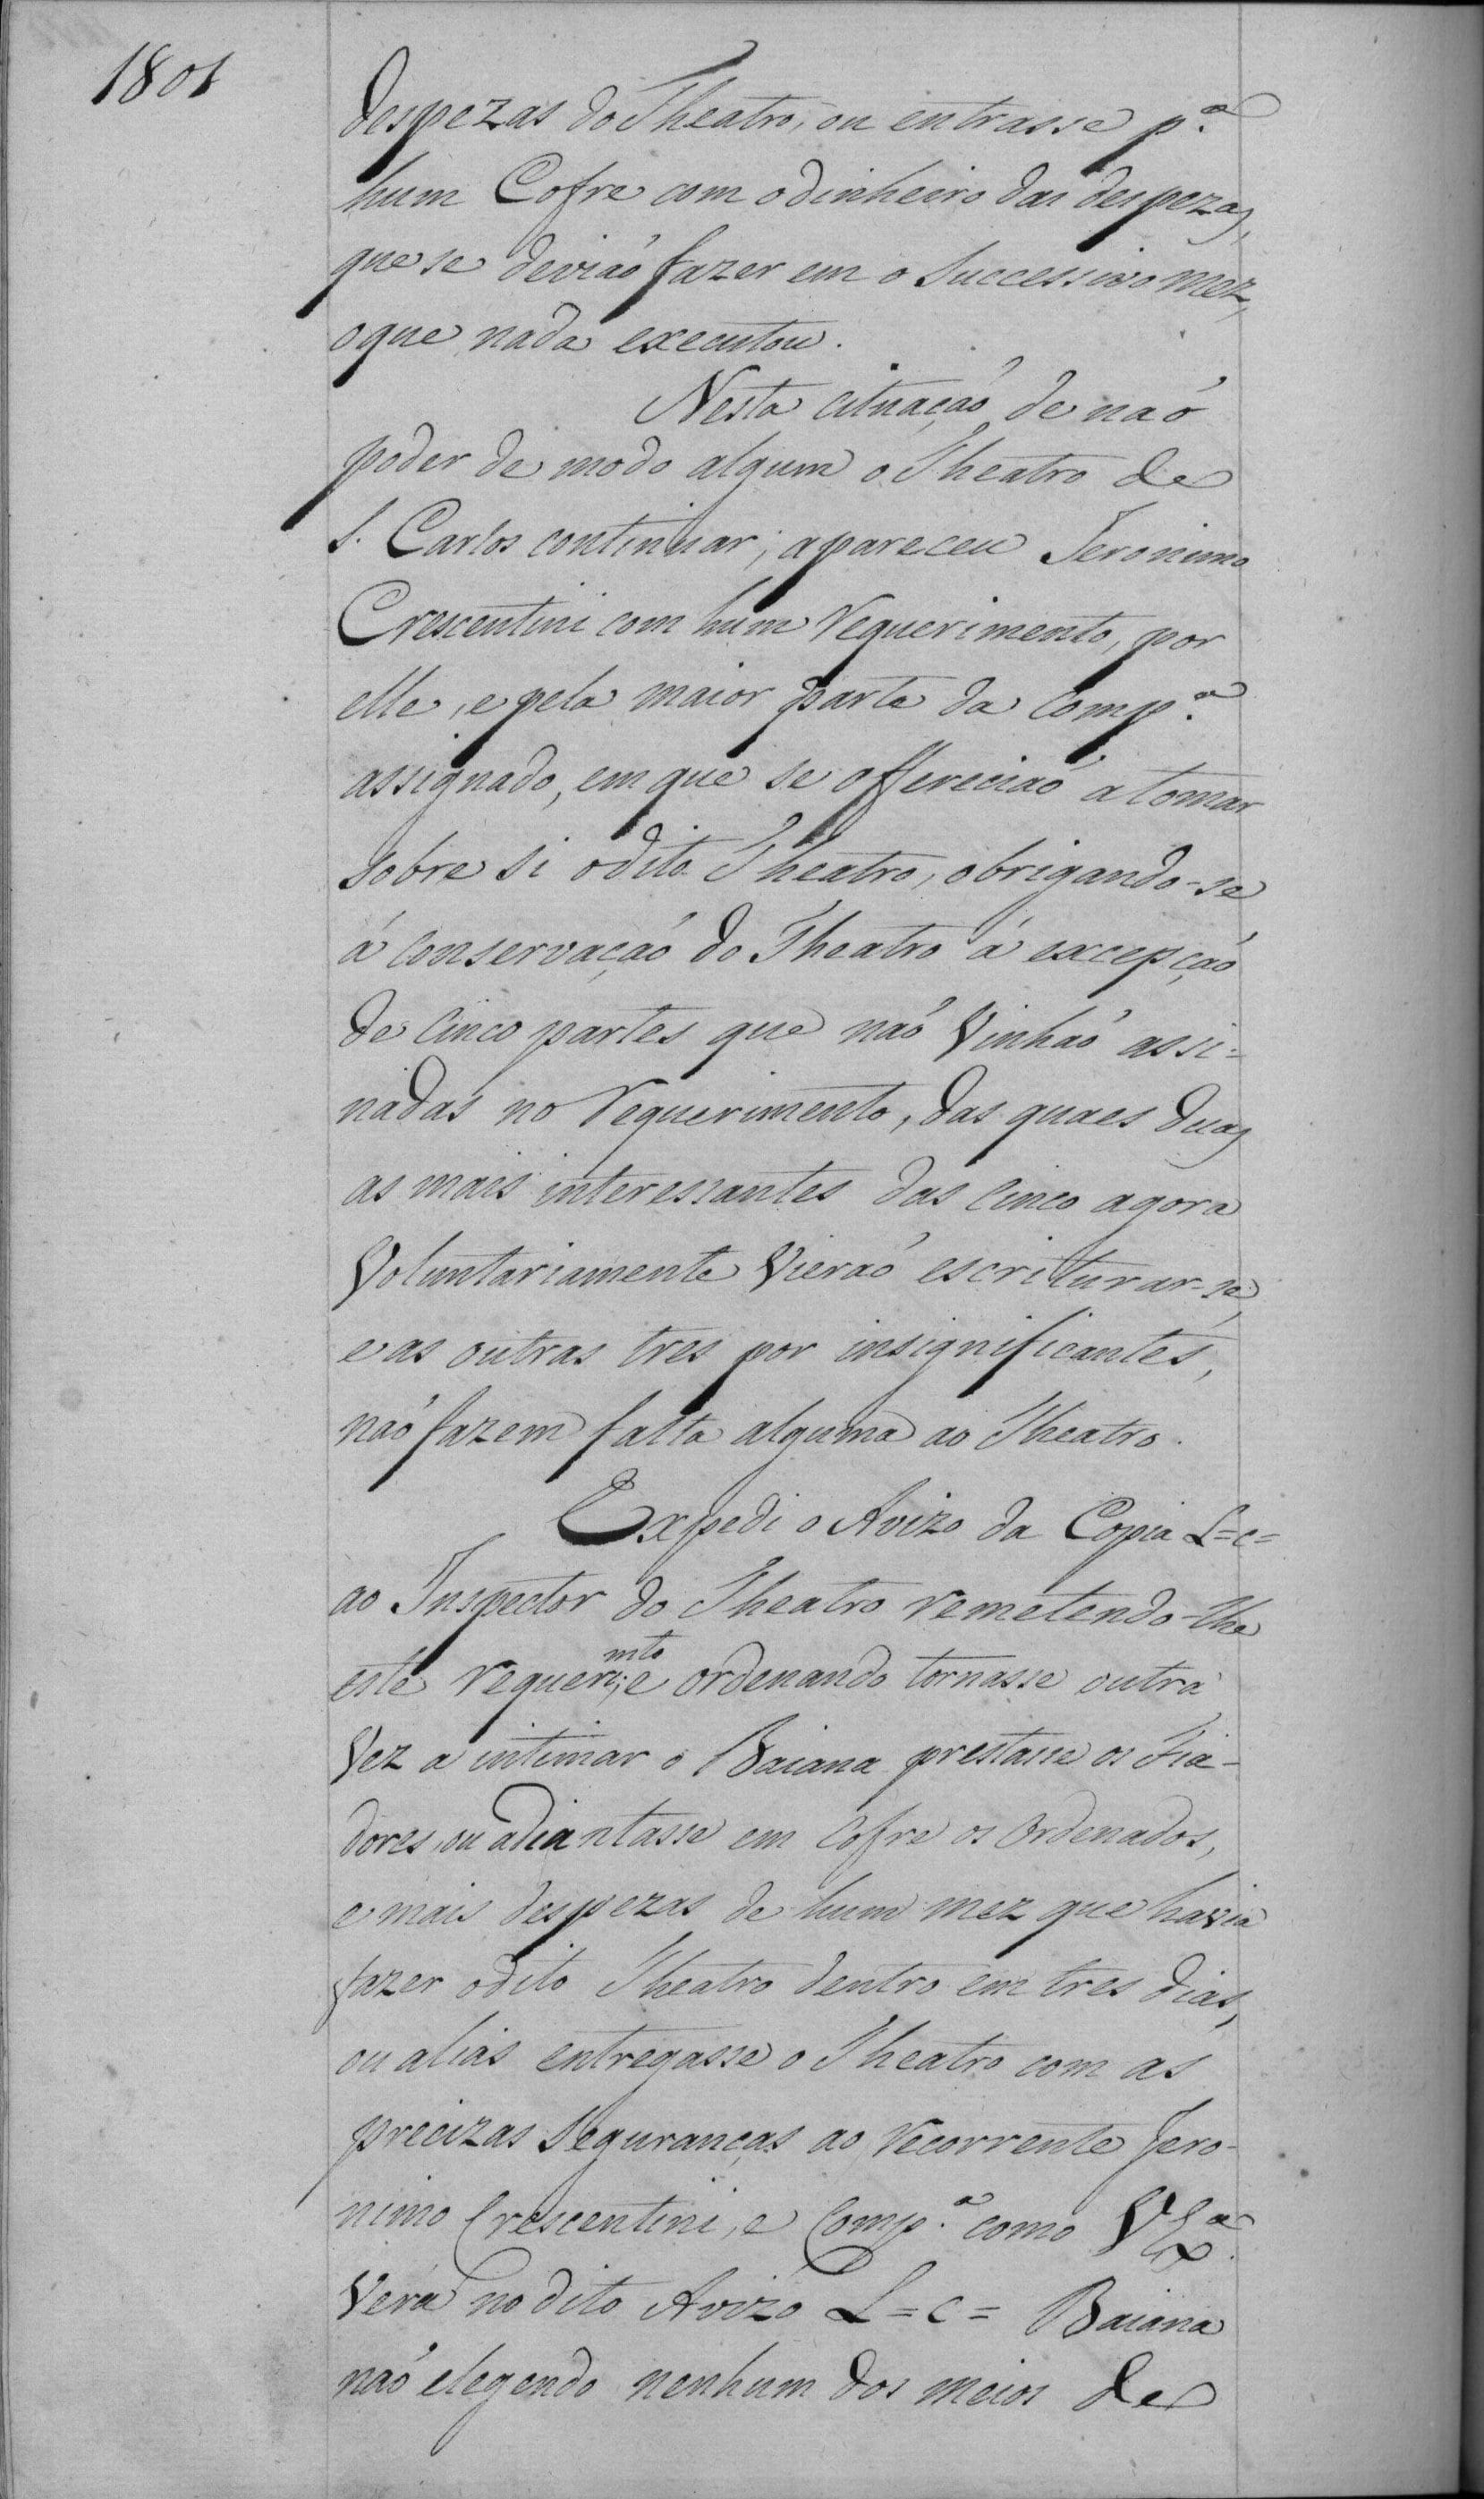 1801
despezas do Theatro, ou entrasse p.ª
hum Cofre com o dinheiro das despezas,
que se deviaó fazer em o Successivo mez,
o que nada executou.
Nesta cituaçaó de naó
poder de modo algum o Theatro de
S. Carlos continuar; apareceu Jeronimo
Crescentini com hum Requerimento, por
elle, e pela maior parte da Comp.ª
assignado, em que se offereciaó a tomar
sobre si o dito Theatro, obrigando-se
á Conservaçaó do Theatro á excepçaó
de Cinco partes que naó Vinhaó assi=
nadas no Requerimento, das quaes duas
as mais interessantes das Cinco agora
Voluntariamente Vieraó escriturar-se,
e as outras tres por insignificantes,
naó fazem falta alguma ao Theatro.
Expedi o Avizo da Copia L=c=
ao Inspector do Theatro remetendo-lhe
este requerimto; e ordenando tornasse outra
Vez a intimar o Baiana prestasse os Fia-
dores, ou adiantasse em Cofre os Ordenados,
e mais despezas de hum mez que havia
fazer o dito Theatro dentro em tres dias,
ou aliás entregasse o Theatro com as
precizas Seguranças ao recorrente Jero-
nimo Crescentini, e Comp.ª como V Ex.ª
Verá no dito Avizo L=c= Baiana
naó elegendo nenhum dos meios de